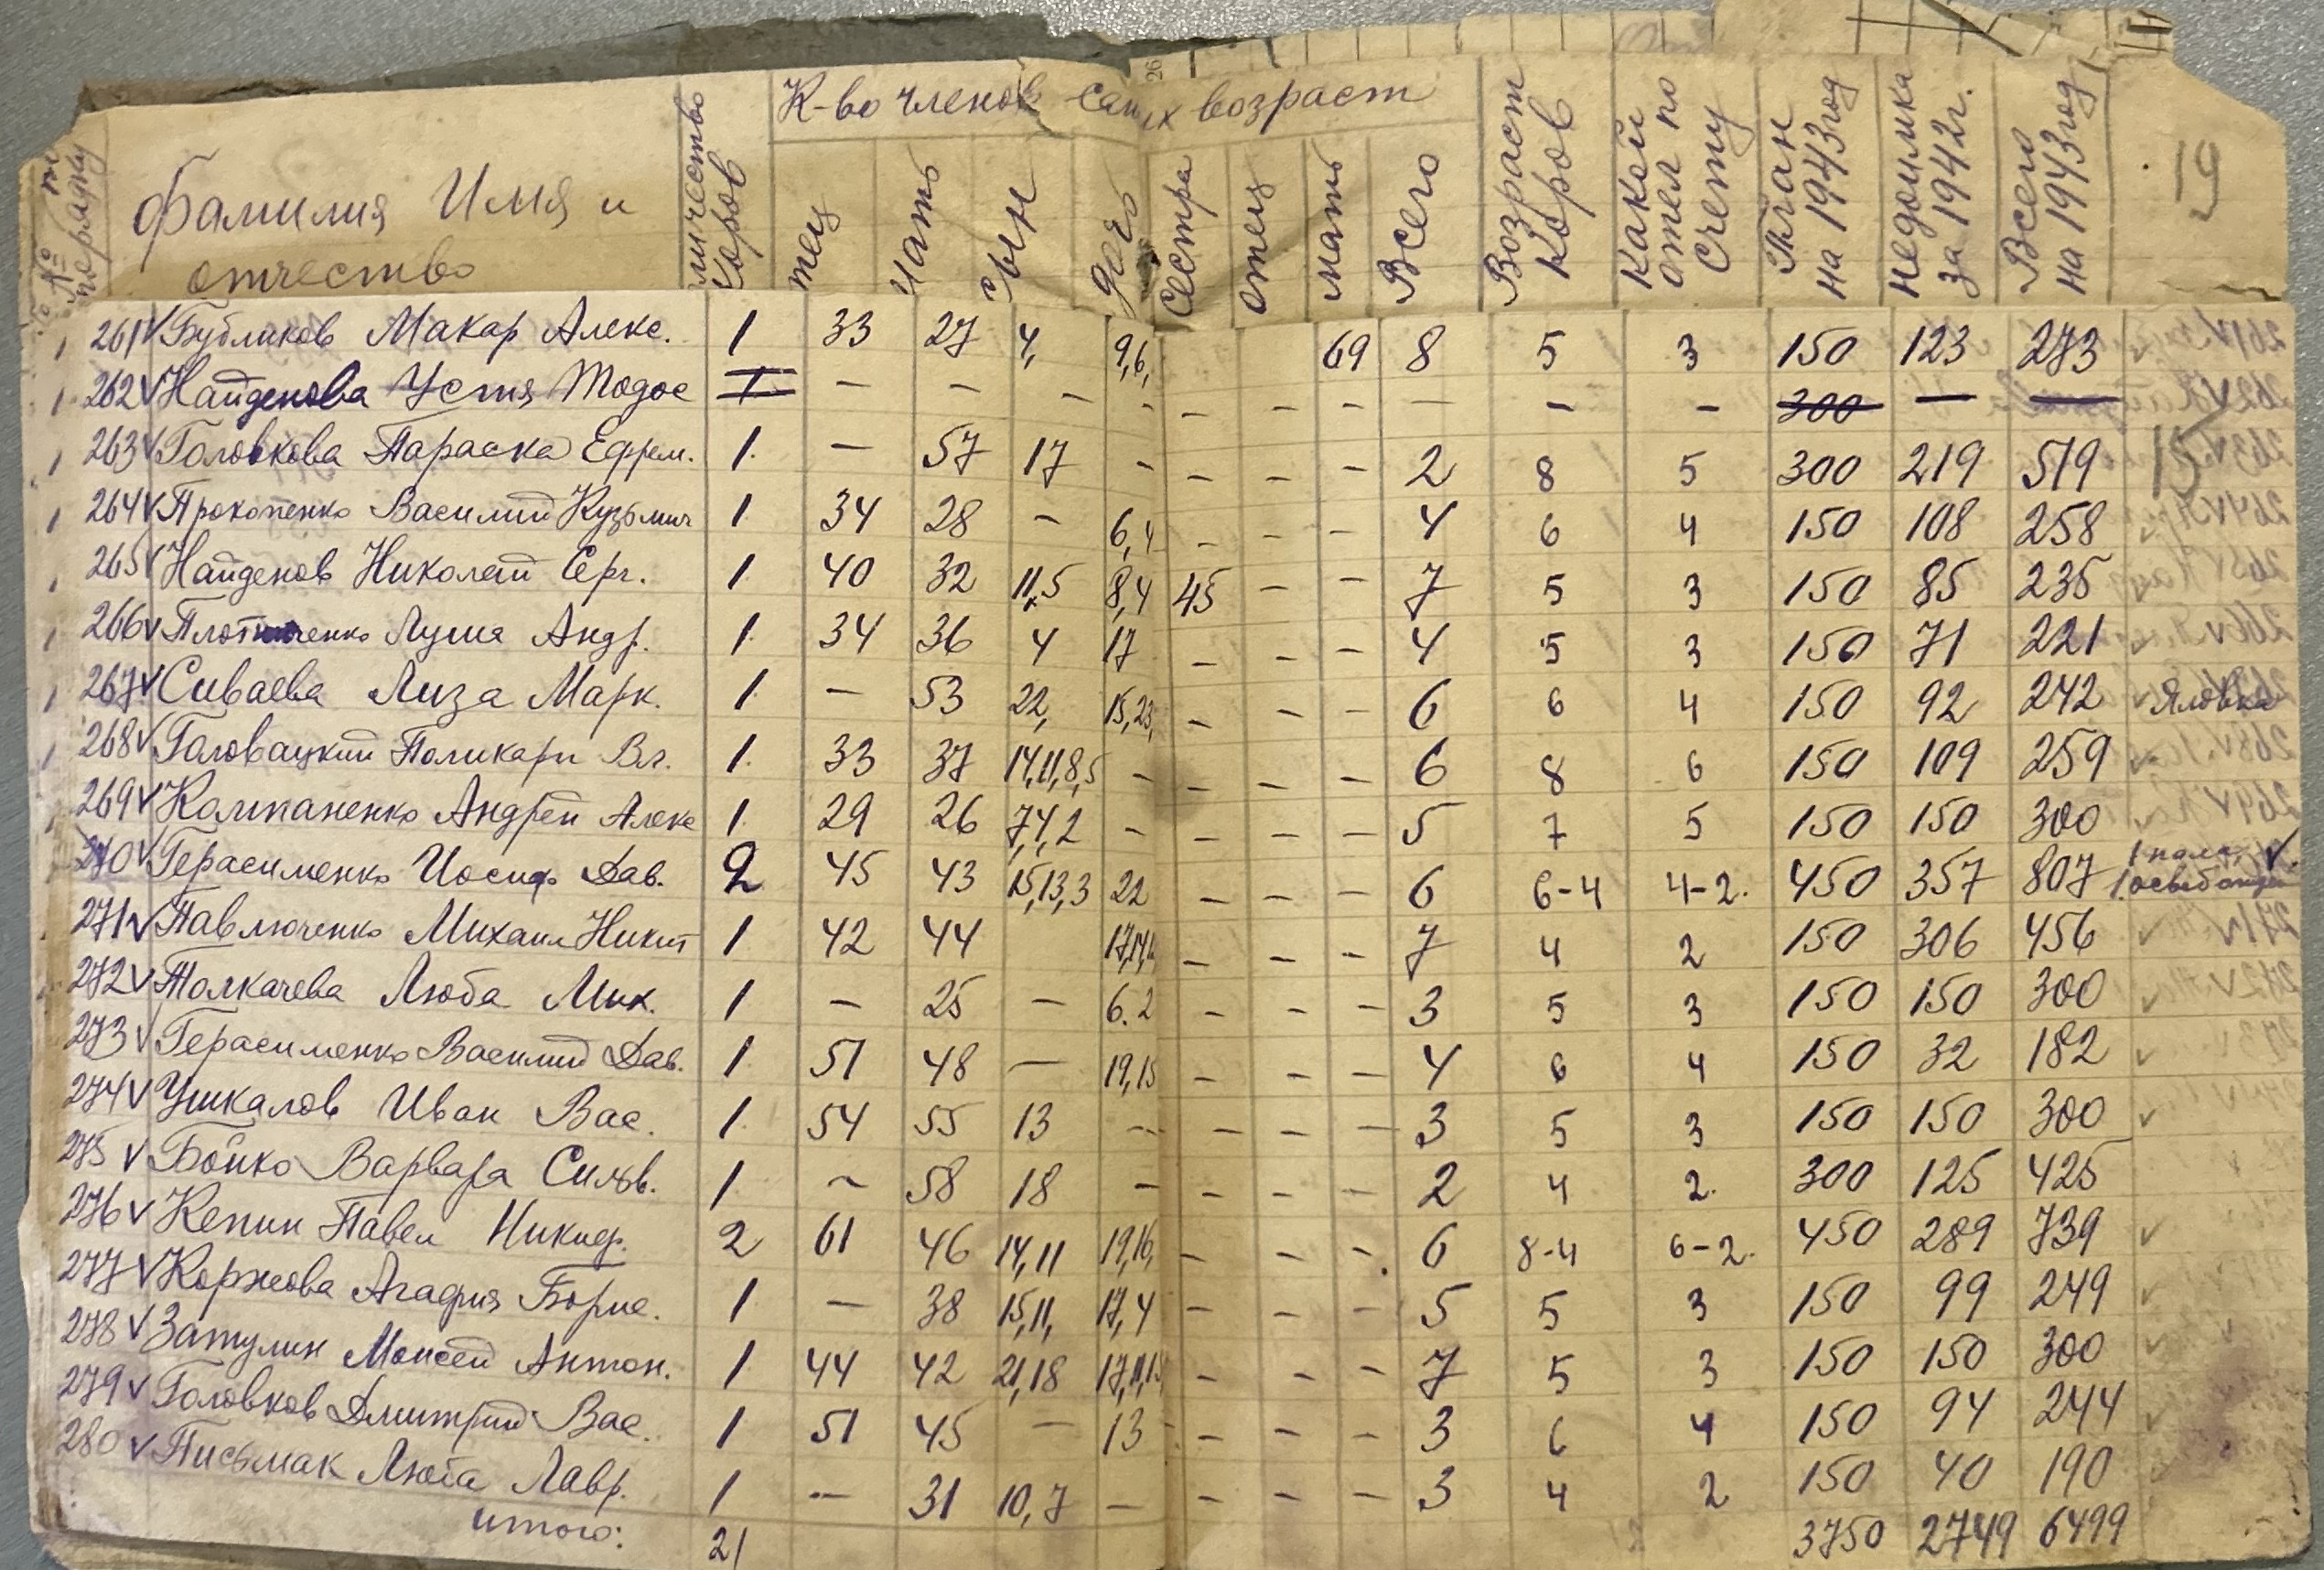 К-во членов сем их возраст
№ по порядку
Фамилия Имя и
отчество
количество коров
отец
мать
сын
дочь
сестра
отец
мать
Всего
Возраст Коров
Какой отел по счету
План на 1943 год
недоимка за 1942 г.
Всего на 1943 год
19
261 v Бубликов Макар Алекс. 1 33 27 4, 9,6, 69 8 5 3 150 123 273
262 v Найденова Устя Тодос 1 — — - - - - - — - - 300 — —
263 v Головкова Параска Ефрем. 1. — 57 17 - - - - 2 8 5 300 219 519
264 v Прокопенко Василий Кузьмич 1 34 28 - 6,4 - - - 4 6 4 150 108 258
265 v Найденов Николай Серг. 1. 40 32 11,5 8,4 45 - - 7 5 3 150 85 235
266 v Луша Андр. 1. 34 36 4 17 - - - 4 5 3 150 71 221
267 v Сиваева Лиза Марк. 1. — 53 22, 15,23, - - - 6 6 4 150 92 242 Яловка
268 v Головацкий Поликарп Вл. 1. 33 37 14,11,8,5 - - - - 6 8 6 150 109 259
269 v Колпаненко Андрей Алекс 1. 29 26 7,4,2 - - - - 5 7 5 150 150 300
270 v Герасименко Иосиф Дав. 2 45 43 15,13,3 22 - - - 6 6-4 4-2. 450 357 807 1
271 v Павлюченко Михаил Никит 1 42 44 17,14, - - - 7 4 2 150 306 456
272 v Толкачева Люба Мих. 1 — 25 — 6.2 - - - 3 5 3 150 150 300
273 v Герасименко Василий Дав. 1 51 48 — 19,15 - - - 4 6 4 150 32 182
274 v Ушкалов Иван Вас. 1. 54 55 13 - - - - 3 5 3 150 150 300
275 v Бойко Варвара Сильв. 1 ~ 58 18 - - - - 2 4 2. 300 125 425
276 v Кепин Павел Никиф. 2 61 46 14,11 19,16, - - - 6 8-4 6-2. 450 289 739
277 v Коржова Агафия Борис. 1 — 38 15,11, 17,4 - - - 5 5 3 150 99 249
278 v Затулин Моисей Антон. 1 44 42 21,18 17,11,15, - - - 7 5 3 150 150 300
279 v Головков Дмитрий Вас. 1 51 45 — 13 - - - 3 6 4 150 94 244
280 v Письмак Люба Лавр. 1 — 31 10,7 — - - - 3 4 2 150 40 190
итого: 21 3750 2749 6499